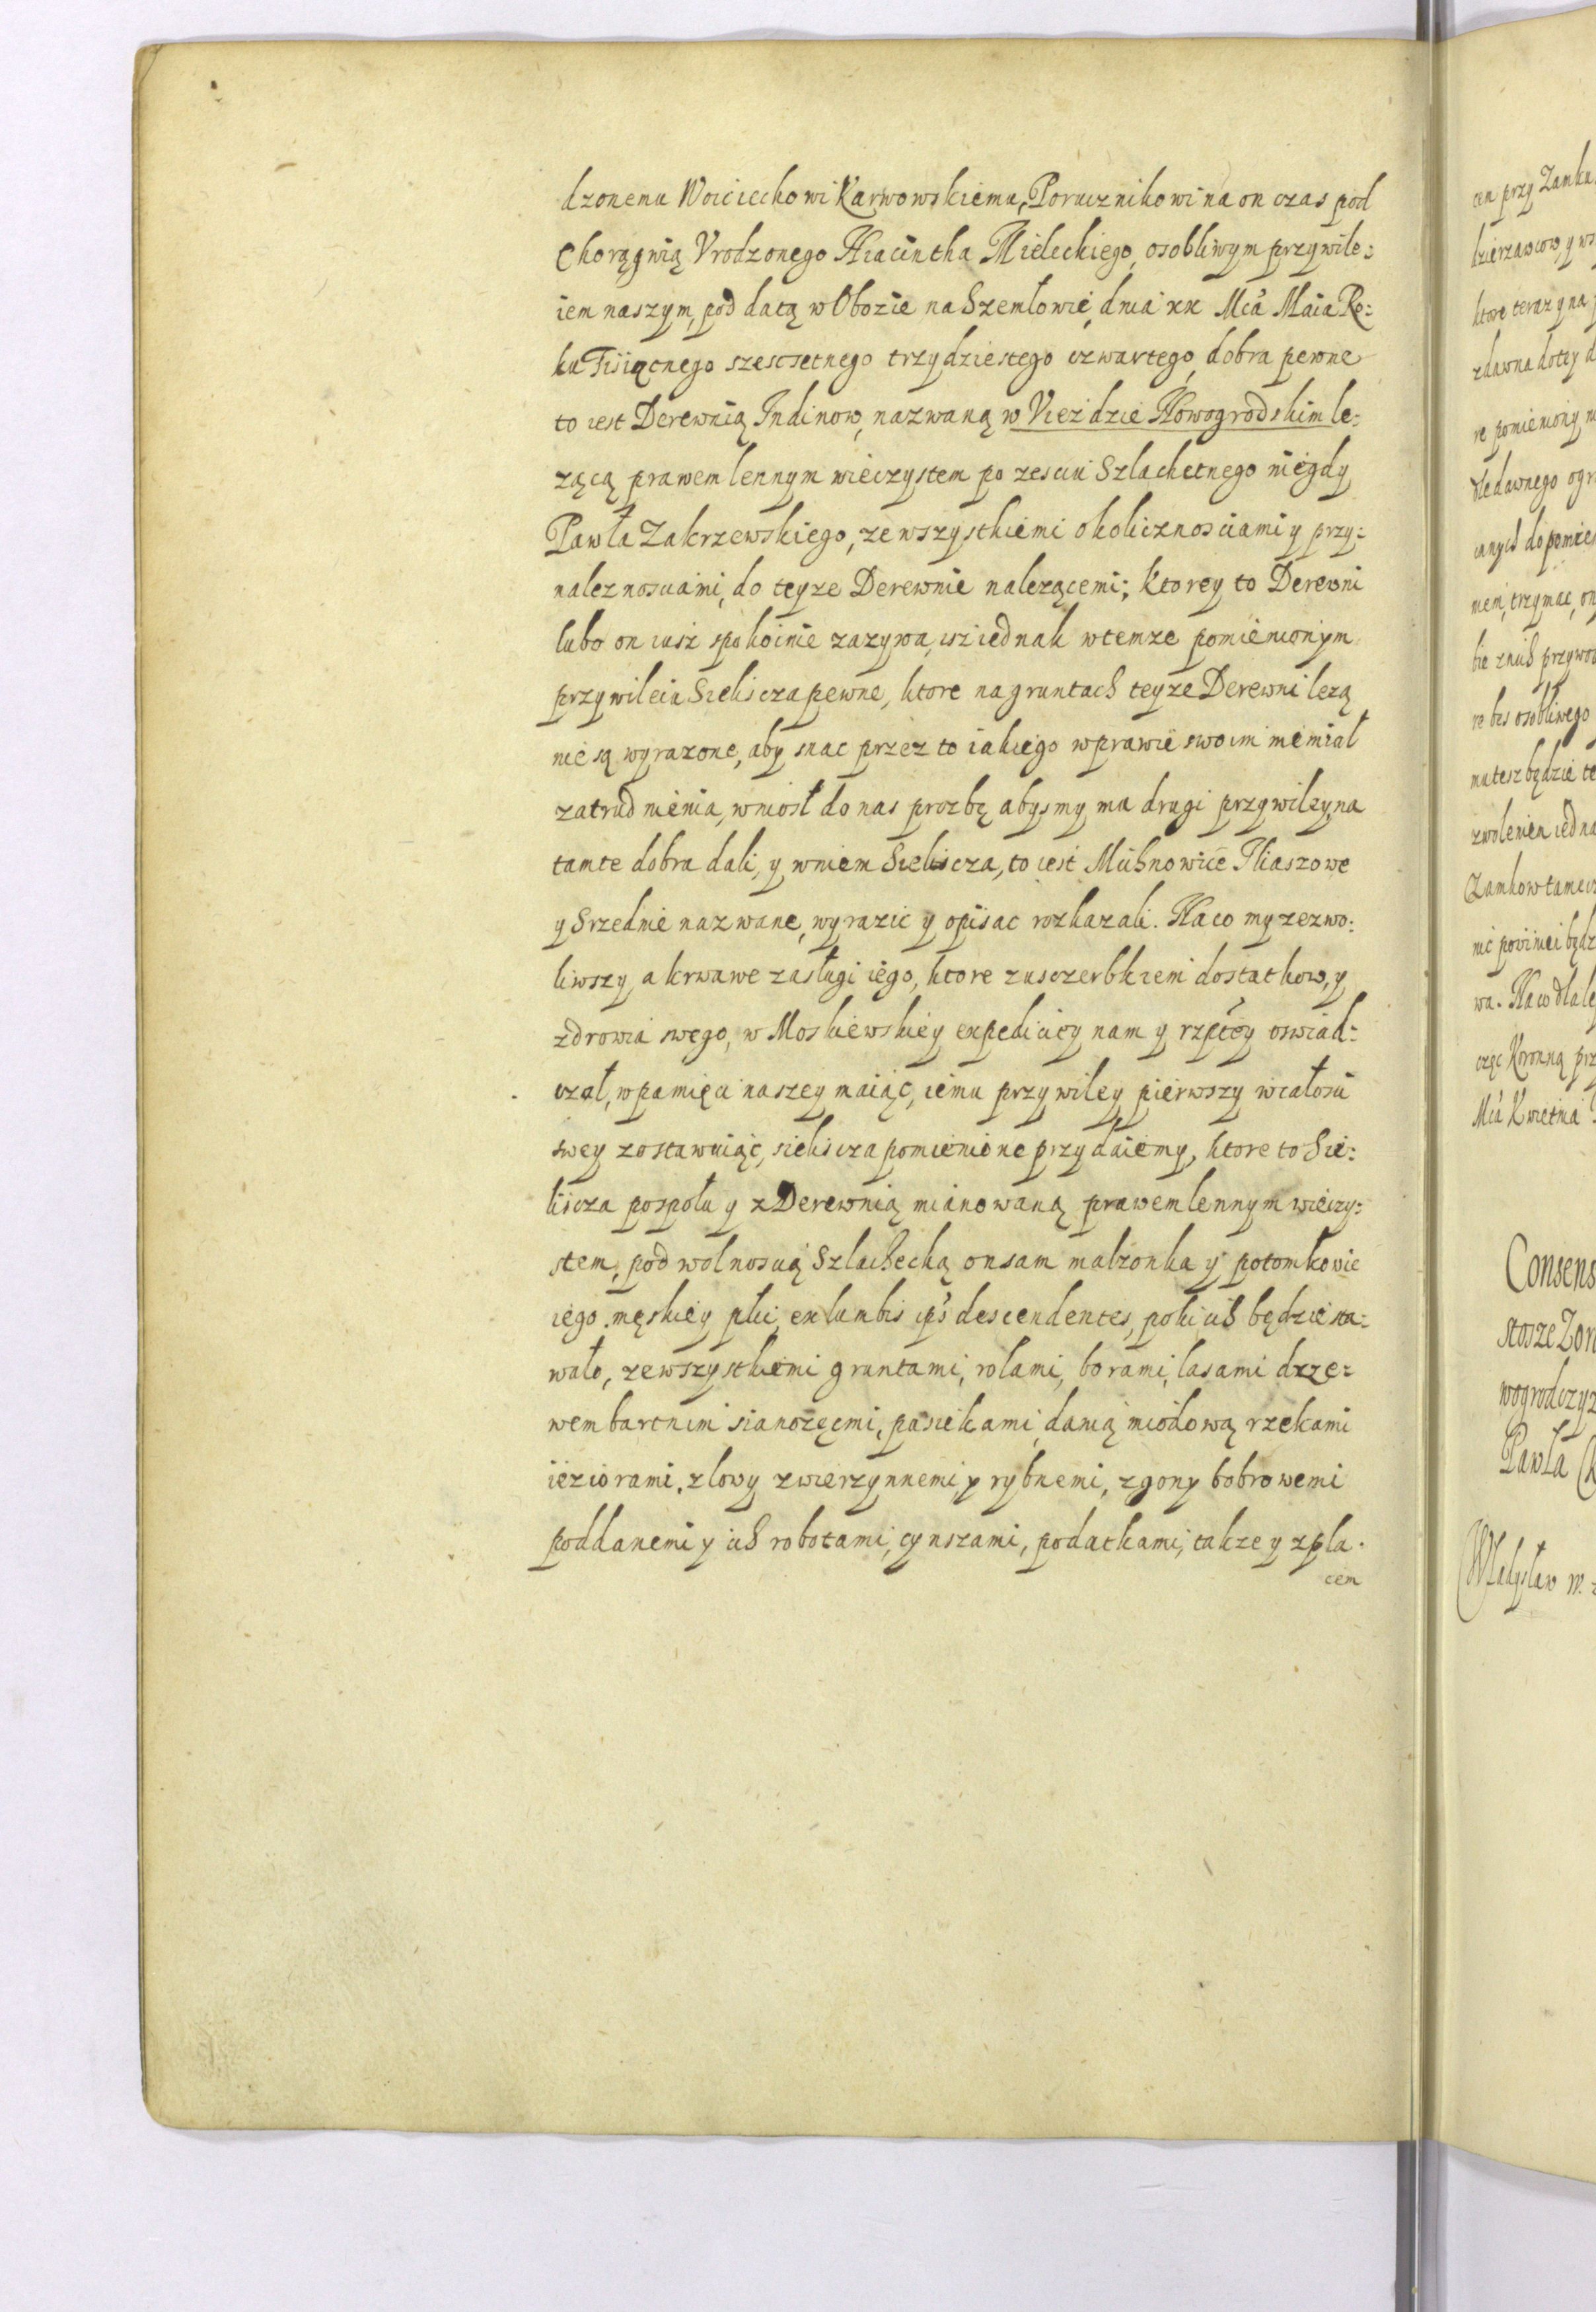 dzonemu Woiciechowi Karwowskiemu, Porucznikowi na on czas pod
Chorągwią Vrodzonego Hiacintha Mieleckiego, osobliwym przywile:
iem naszym, pod datą w Obozie na Szemłowie, dnia xx Mca Maia Ro:
ku Tisiącnego szescsetnego trzydziestego czwartego, dobra pewne
to iest Derewnią Indinow, nazwaną w Vieździe Nowogrodskim le:
zącą prawem lennym wieczystem po zesciu Szlachetnego niegdy
Pawła Zakrzewskiego, ze wszystkiemi okolicznosciami y przy:
naleznosciami, do teyze Derewnie nalezącemi; ktorey to Derewni
lubo on iusz spokoinie zazywa, isz iednak w temze pomienionym
przywileiu Sieliscza pewne, ktore na gruntach teyze Derewni lezą
nie są wyrazone, aby snac przez to iakiego w prawie swoim niemiał
zatrudnienia, wniosł do nas prozbę abysmy mu drugi przywiley na
tamte dobra dali, y w niem Sieliscza, to iest Michnowice Iliaszowe
y Srzednie nazwane, wyrazic y opisac rozkazali. Na co my zezwo:
liwszy, a krwawe zasługi iego, ktore z usczerbkiem dostatkow, y
zdrowia swego, w Moskiewskiey expediciey nam y rzptey oswiad:
czał, w pamięci naszey maiąc, iemu przywiley pierwszy w całosci
swey zostawuiąc, sieliscza pomienione przydaiemy, ktore to Sie:
liscza pospołu y z Derewnią mianowaną prawem lennym wieczy:
stem, pod wolnoscią Szlachecką on sam małzonka y potomkowie
iego męskiey płci, ex lumbis ips descendentes, poki ich będzie sta:
wało, ze wszystkiemi gruntami, rolami, borami, lasami drze:
wem bartnim sianozęcmi, pasiekami, danią miodową rzekami
ieziorami, z łowy zwierzynnemi y rybnemi, z gony bobrowemi
poddanemi y ich robotami, cynszami, podatkami, takze y z pla.
cem